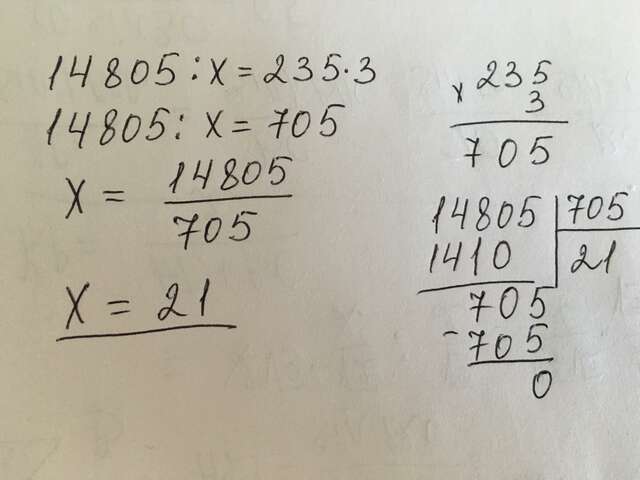 14805 : x = 235 · 3
14805 : x = 705
x = 14805
705
x = 21
x 235
3
705
14805 | 705
1410 | 21
705
- 705
0